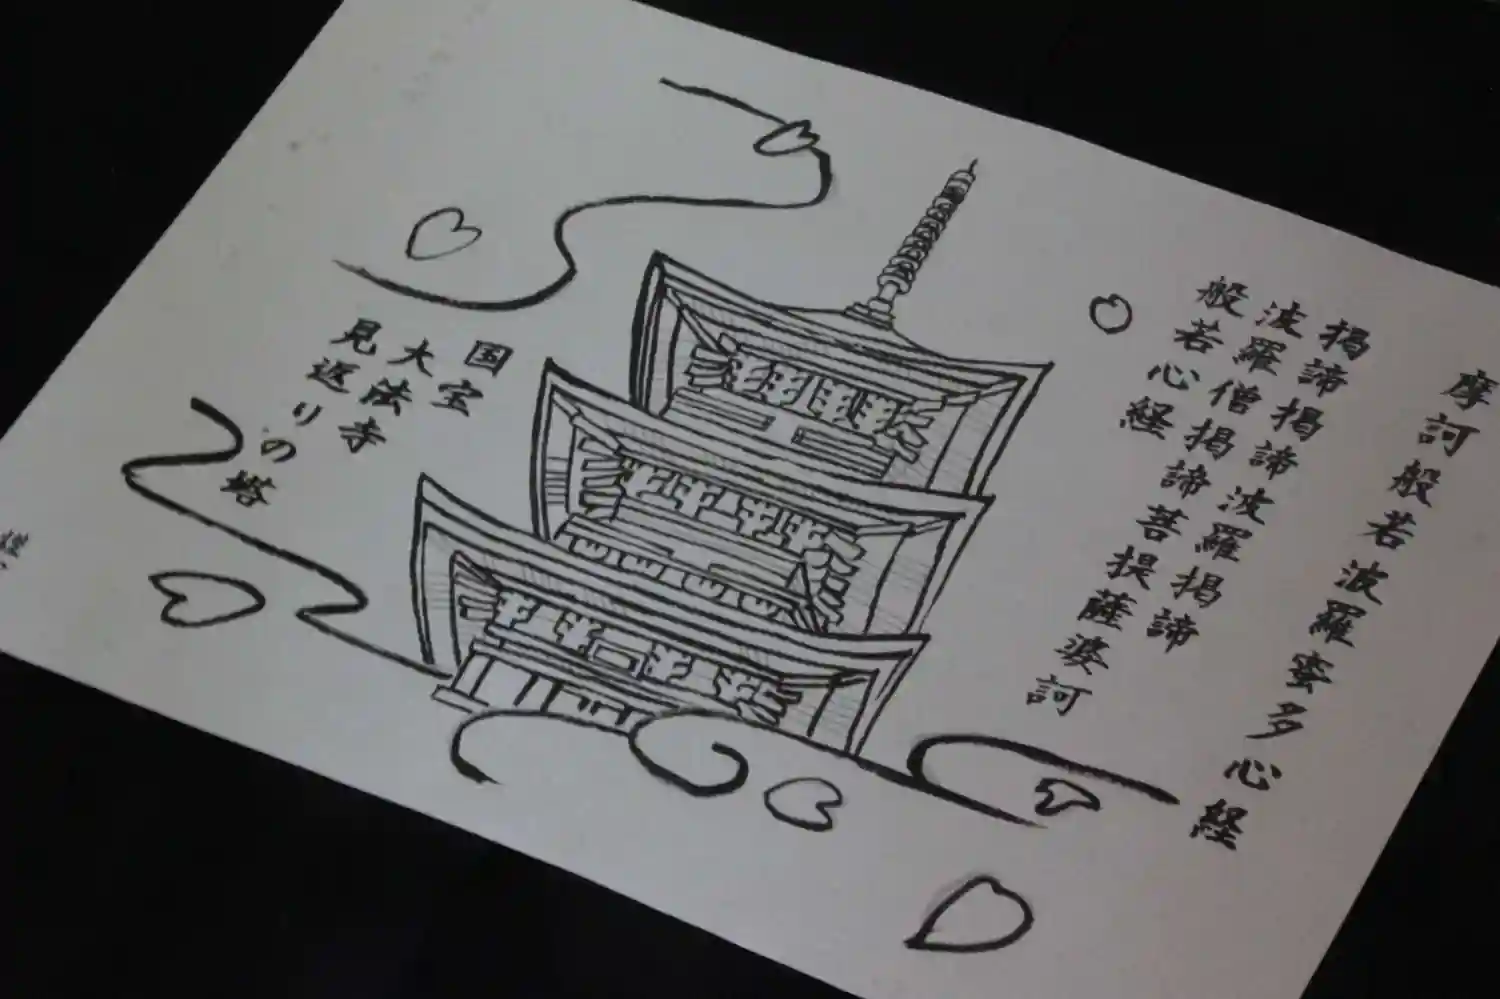 摩訶般若波羅蜜多心経
掲諦掲諦波羅掲諦
波羅僧掲諦菩提薩婆訶
般若心経
国宝
大法寺
見返りの塔